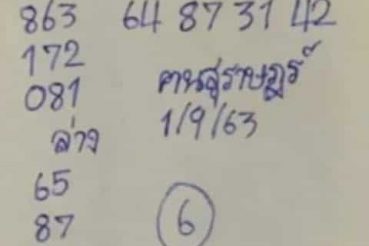 863 64 87 31 42
172
081 คนสุราษฎร์
ล่าง 1/9/63
65
87 6